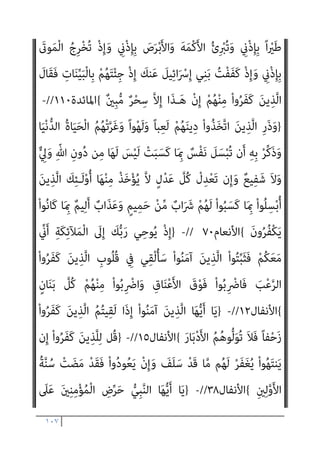 طَيْرًا بِإِذْنِي وَتُبْرِئُ الْأَكْمَهَ وَالْأَبْرَصَ بِإِذْنِي وَإِذْ تُخْرِجُ الْمَوتَى
بِإِذْنِي وَإِذْ كَفَفْتُ بَنِي إِسْرَائِيلَ عَنكَ إِذْ جِئْتَهُمْ بِالْبَيِّنَاتِ فَقَالَ
الَّذِينَ كَفَرُوا مِنْهُمْ إِنْ هَـذَا إِلاَّ سِحْرٌ مُّبِينٌ} المائدة١١٠//-
{وَذَرِ الَّذِينَ اتَّخَذُوا دِينَهُمْ لَعِباً وَلَهْواً وَغَرَّتْهُمُ الْحَيَاةُ الدُّنْيَا
وَذَكِّرْ بِهِ أَن تُبْسَلَ نَفْسٌ بِمَا كَسَبَتْ لَيْسَ لَهَا مِن دُونِ اللهِ وَلِيٌّ
وَلاَ شَفِيعٌ وَإِن تَعْدِلْ كُلَّ عَدْلٍ لاَّ يُؤْخَذْ مِنْهَا أُوْلَـئِكَ الَّذِينَ
أُبْسِلُوا بِمَا كَسَبُوا لَهُمْ شَرَابٌ مِّنْ حَمِيمٍ وَعَذَابٌ أَلِيمٌ بِمَا كَانُوا
يَكْفُرُونَ} الأنعام٧٠ //- {إِذْ يُوحِي رَبُّكَ إِلَى الْمَلآئِكَةِ أَنِّي
مَعَكُمْ فَثَبِّتُوا الَّذِينَ آمَنُوا سَأُلْقِي فِي قُلُوبِ الَّذِينَ كَفَرُوا
الرَّعْبَ فَاضْرِبُوا فَوْقَ الأَعْنَاقِ وَاضْرِبُوا مِنْهُمْ كُلَّ بَنَانٍ
} الأنفال١٢//- {يَا أَيُّهَا الَّذِينَ آمَنُوا إِذَا لَقِيتُمُ الَّذِينَ كَفَرُوا
زَحْفاً فَلاَ تُوَلُّوهُمُ الأَدْبَارَ} الأنفال١٥//- {قُل لِلَّذِينَ كَفَرُوا إِن
يَنتَهُوا يُغَفَرْ لَهُم مَّا قَدْ سَلَفَ وَإِنْ يَعُودُوا فَقَدْ مَضَتْ سُنَّةُ
الأَوَّلِينَ} الأنفال٣٨//- {يَا أَيُّهَا النَّبِيُّ حَرِّضِ الْمُؤْمِنِينَ عَلَى
١٠٧